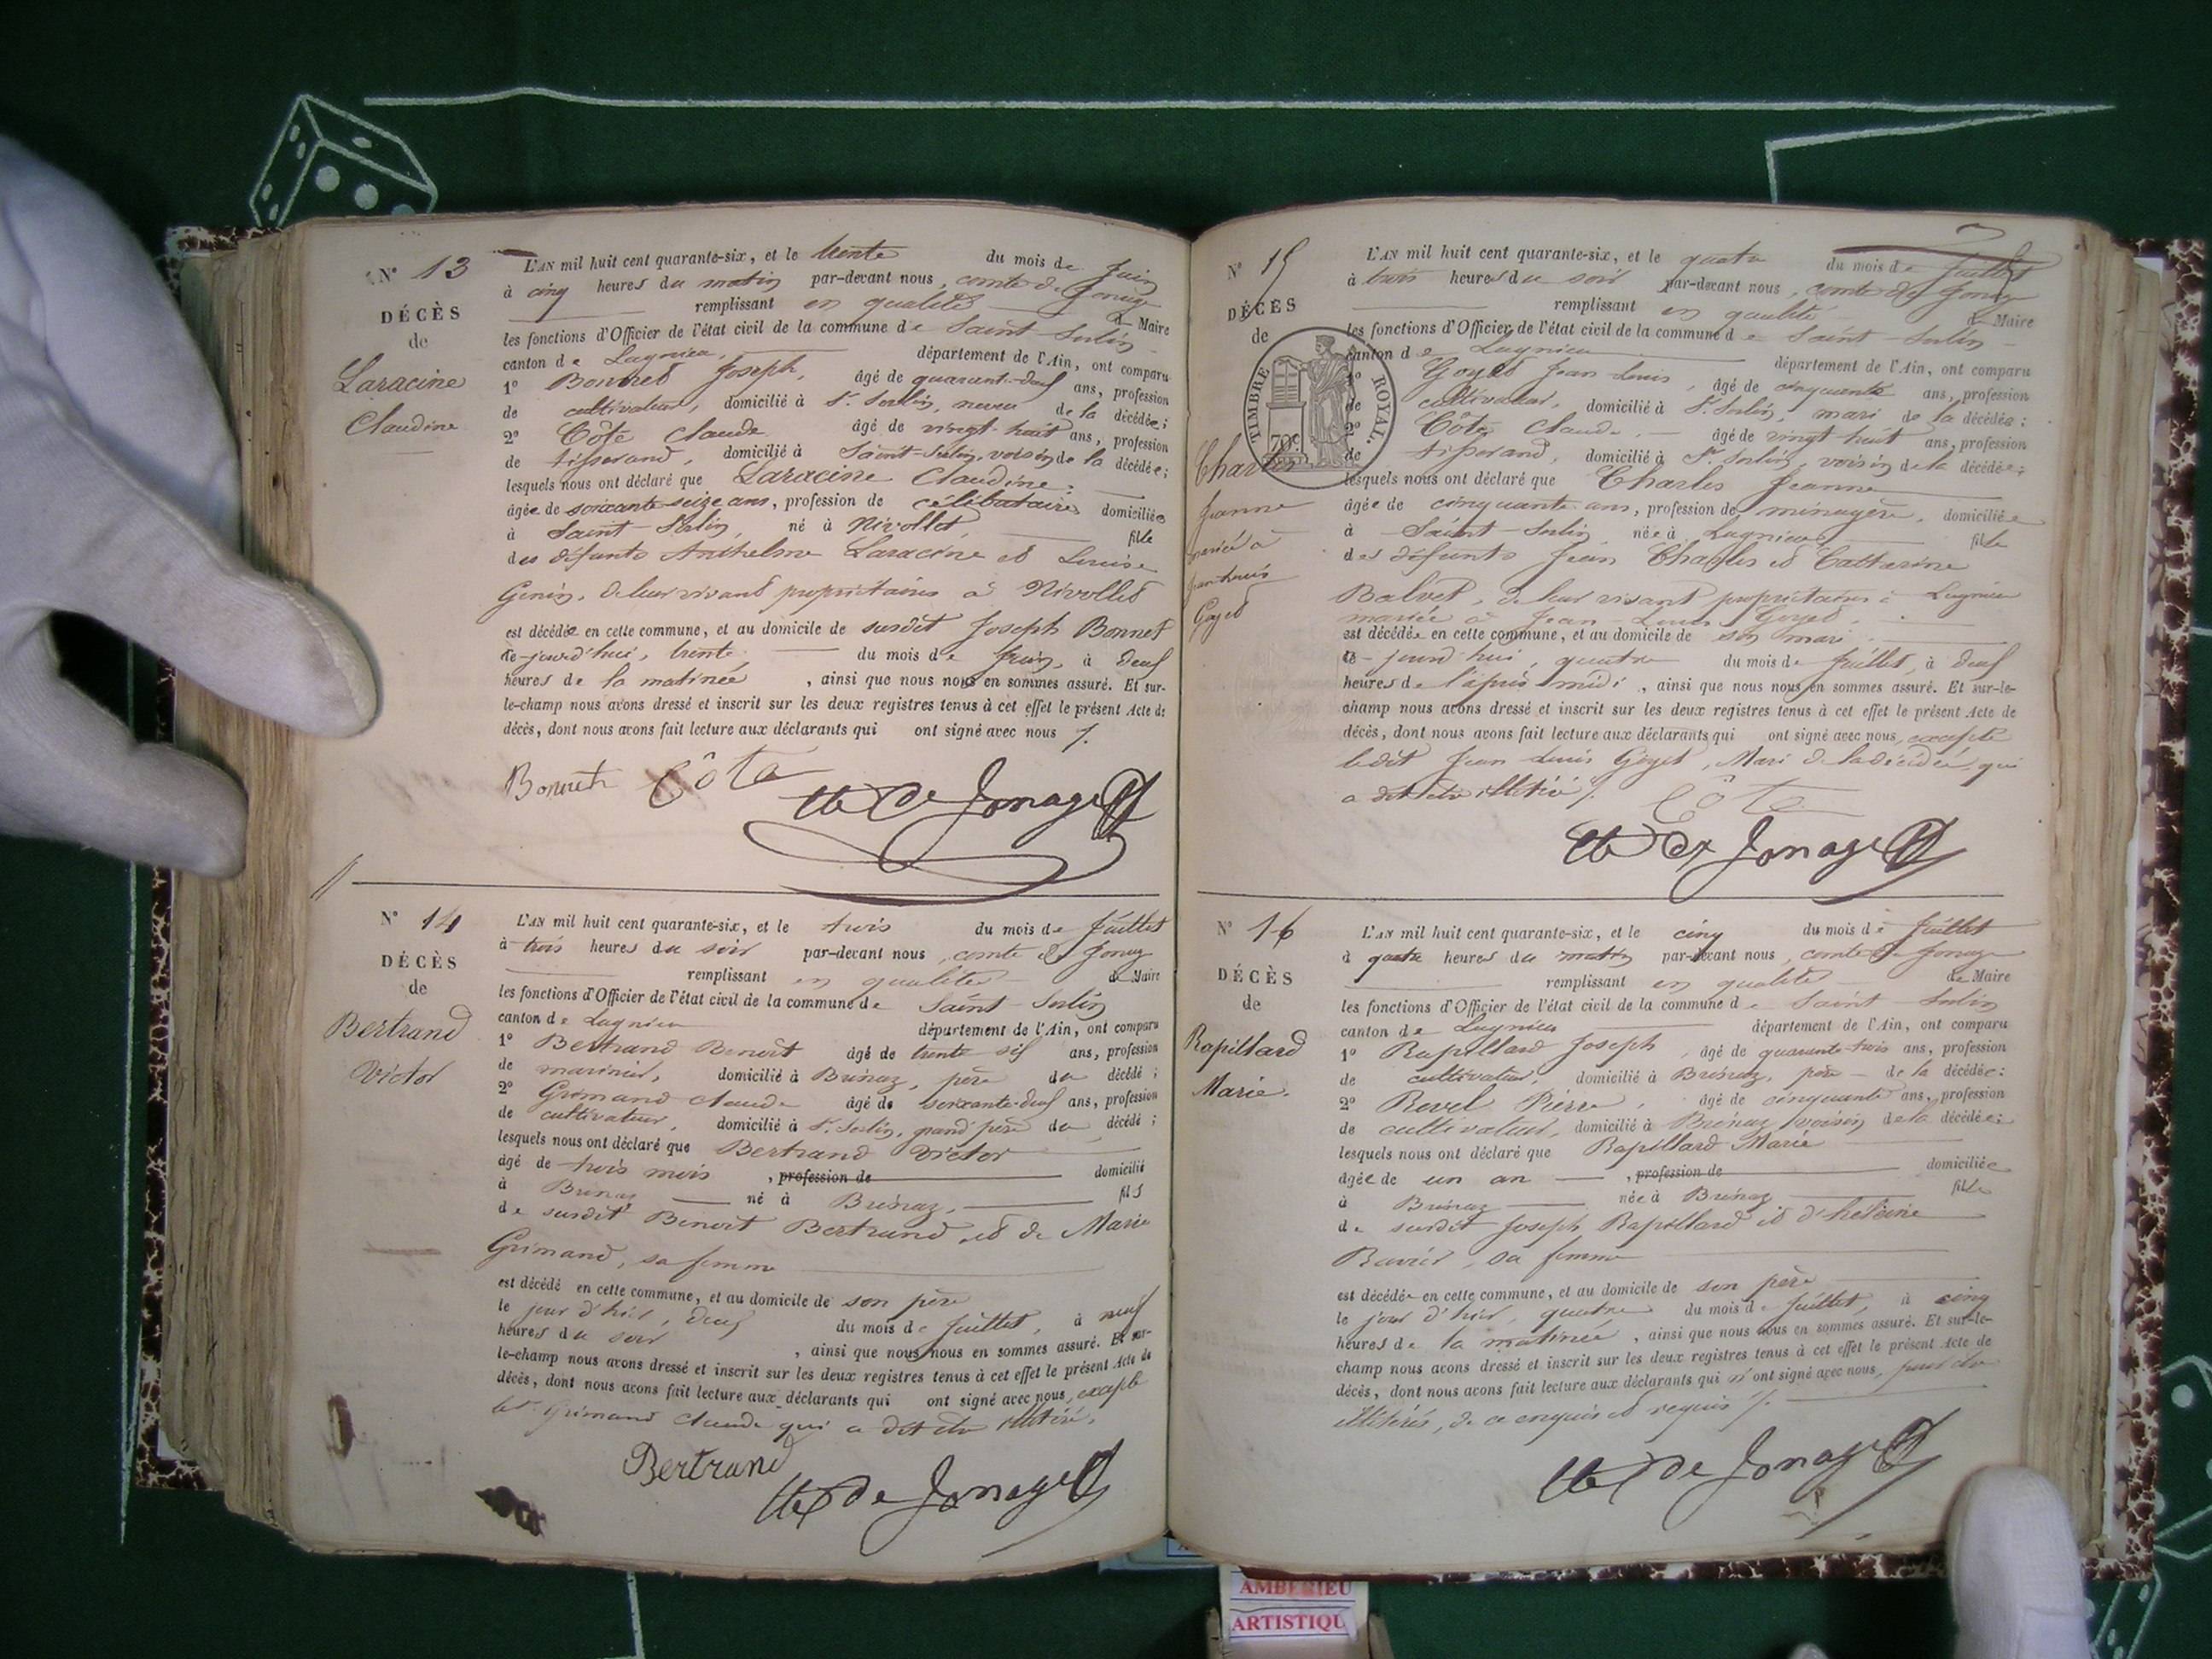 N° 13
DÉCÈS
de
Laracine
Claudine
L'AN mil huit cent quarante-six, et le trente du mois de Juin
à cinq heures du matin par-devant nous, comte de Jonage
remplissant en qualité de Maire
les fonctions d'Officier de l'état civil de la commune de Saint-Sorlin
canton de Lagnieu, département de l'Ain, ont comparu
1° Bonnet Joseph, âgé de quarant-deux ans, profession
de cultivateur, domicilié à St. Sorlin, neveu de la décédée;
2° Côte Claude âgé de vingt-huit ans, profession
de tisserand, domicilié à Saint-Sorlin, voisin de la décédée;
lesquels nous ont déclaré que Laracine Claudine;
âgée de soixante-seize ans, profession de célibataire domiciliée
à Saint-Sorlin, né à Nivollet, fille
des défunts Anthelme Laracine et Louise
Genin, de leur vivant propriétaires à Nivollet
est décédée en cette commune, et au domicile de susdit Joseph Bonnet
ce-jourd'hui, trente, du mois de Juin, à deux
heures de la matinée, ainsi que nous nous en sommes assuré. Et sur-
le-champ nous avons dressé et inscrit sur les deux registres tenus à cet effet le présent Acte de
décès, dont nous avons fait lecture aux déclarants qui ont signé avec nous /.
Bonnet Côte Cte de Jonage
N° 14
DÉCÈS
de
Bertrand
Victor
L'AN mil huit cent quarante-six, et le trois du mois de Juillet
à trois heures du soir par-devant nous, comte de Jonage
remplissant en qualité de Maire
les fonctions d'Officier de l'état civil de la commune de Saint-Sorlin
canton de Lagnieu département de l'Ain, ont comparu
1° Bertrand Benoit âgé de trente six ans, profession
de marinier, domicilié à Brénaz, père du décédé;
2° Grimand Claude âgé de soixante-deux ans, profession
de cultivateur, domicilié à St. Sorlin, grand père du décédé;
lesquels nous ont déclaré que Bertrand Victor
âgé de trois mois, profession de domicilié
à Brénaz né à Brénaz, fils
de susdit Benoit Bertrand et de Marie
Grimand, sa femme
est décédé en cette commune, et au domicile de son père
le jour d'hier, deux du mois de Juillet, à neuf
heures du soir, ainsi que nous nous en sommes assuré. Et sur-
le-champ nous avons dressé et inscrit sur les deux registres tenus à cet effet le présent Acte de
décès, dont nous avons fait lecture aux déclarants qui ont signé avec nous, excepté
le St. Grimand Claude qui a dit être illitéré.
Bertrand Cte de Jonage
N° 15
DÉCÈS
de
TIMBRE ROYAL.
70 c
Charles
Jeanne
mariée à
Jean-Louis
Goyet
L'AN mil huit cent quarante-six, et le quatre du mois de Juillet
à trois heures du soir par-devant nous, comte de Jonage
remplissant en qualité de Maire
les fonctions d'Officier de l'état civil de la commune de Saint-Sorlin
canton de Lagnieu département de l'Ain, ont comparu
1° Goyet Jean-Louis, âgé de cinquante ans, profession
de cultivateur, domicilié à St. Sorlin, mari de la décédée;
2° Côte Claude, âgé de vingt huit ans, profession
de tisserand, domicilié à St. Sorlin, voisin de la décédée;
lesquels nous ont déclaré que Charles Jeanne
âgée de cinquante ans, profession de ménagère, domiciliée
à Saint-Sorlin, née à Lagnieu fille
des défunts Jean Charles et Catherine
Balvet, de leur vivant propriétaires à Lagnieu
mariée à Jean-Louis Goyet.
est décédée en cette commune, et au domicile de son mari
ce-jourd'hui, quatre du mois de Juillet, à deux
heures de l'après midi, ainsi que nous nous en sommes assuré. Et sur-le-
champ nous avons dressé et inscrit sur les deux registres tenus à cet effet le présent Acte de
décès, dont nous avons fait lecture aux déclarants qui ont signé avec nous, excepté
ledit Jean Louis Goyet, Mari de la décédée, qui
a dit être illitéré /. Côte
Cte de Jonage
N° 16
DÉCÈS
de
Rapillard
Marie.
L'AN mil huit cent quarante-six, et le cinq du mois de Juillet
à quatre heures du matin par-devant nous, comte de Jonage
remplissant en qualité de Maire
les fonctions d'Officier de l'état civil de la commune de Saint-Sorlin
canton de Lagnieu département de l'Ain, ont comparu
1° Rapillard Joseph, âgé de quarante-trois ans, profession
de cultivateur, domicilié à Brénaz, père de la décédée;
2° Revel Pierre, âgé de cinquante ans, profession
de cultivateur, domicilié à Brénaz, voisin de la décédée;
lesquels nous ont déclaré que Rapillard Marie
âgée de un an, profession de domiciliée
à Brénaz née à Brénaz fille
de susdit Joseph Rapillard et d'heleine
sa femme
est décédée en cette commune, et au domicile de son père
le jour d'hier, quatre du mois de Juillet, à cinq
heures de la matinée, ainsi que nous nous en sommes assuré. Et sur-le-
champ nous avons dressé et inscrit sur les deux registres tenus à cet effet le présent Acte de
décès, dont nous avons fait lecture aux déclarants qui n'ont signé avec nous, pour être
illitérés, de ce enquis et requis /.
Cte de Jonage
AMBERIEU
ARTISTIQU